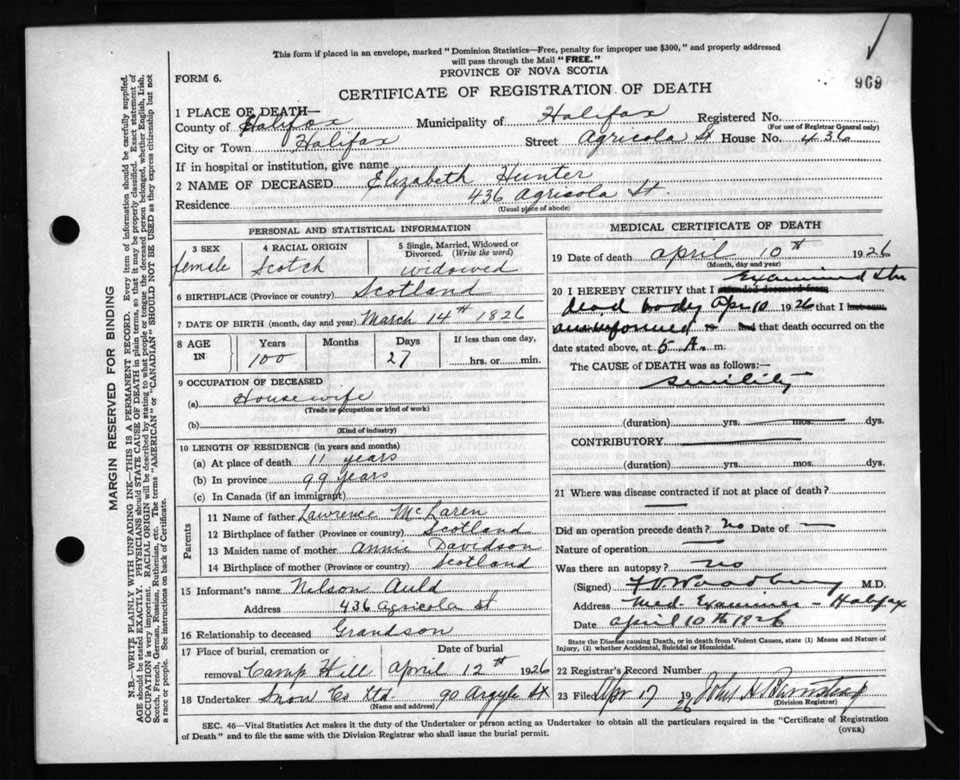 This form if placed in an envelope, marked "Dominion Statistics—Free, penalty for improper use $300," and properly addressed
will pass through the Mail "FREE."
FORM 6.
PROVINCE OF NOVA SCOTIA
969
CERTIFICATE OF REGISTRATION OF DEATH
1 PLACE OF DEATH—
County of Halifax Municipality of Halifax Registered No.
(For use of Registrar General only)
City or Town Halifax Street Agricola St House No. 436
If in hospital or institution, give name
2 NAME OF DECEASED Elizabeth Hunter
Residence 436 Agricola St.
(Usual place of abode)
PERSONAL AND STATISTICAL INFORMATION
3 SEX 4 RACIAL ORIGIN 5 Single, Married, Widowed or
Divorced. (Write the word)
female Scotch widowed
6 BIRTHPLACE (Province or country) Scotland
7 DATE OF BIRTH (month, day and year) March 14th 1826
8 AGE IN Years Months Days If less than one day,
100 27 hrs. or min.
9 OCCUPATION OF DECEASED
(a) Housewife
(Trade or occupation or kind of work)
(b)
(Kind of industry)
10 LENGTH OF RESIDENCE (in years and months)
(a) At place of death 11 years
(b) In province 99 years
(c) In Canada (if an immigrant)
Parents
11 Name of father Lawrence McLaren
12 Birthplace of father (Province or country) Scotland
13 Maiden name of mother Annie Davidson
14 Birthplace of mother (Province or country) Scotland
15 Informant's name Nelson Auld
Address 436 Agricola St
16 Relationship to deceased Grandson
17 Place of burial, cremation or Date of burial
removal Camp Hill April 12th 1926
18 Undertaker Snow Co Ltd. 90 Argyle St
(Name and address)
MEDICAL CERTIFICATE OF DEATH
19 Date of death April 10th 1926
(Month, day and year)
Examined the
20 I HEREBY CERTIFY that I
dead body Apr 10 1926 that I
that death occurred on the
date stated above, at 5 A. m.
The CAUSE of DEATH was as follows:—
Senility
(duration) yrs. mos. dys.
CONTRIBUTORY
(duration) yrs. mos. dys.
21 Where was disease contracted if not at place of death?
Did an operation precede death? No Date of —
Nature of operation —
Was there an autopsy? No
(Signed) Woodbury M.D.
Address Med. Examiner - Halifax
Date April 10th 1926
State the Disease causing Death, or in death from Violent Causes, state (1) Means and Nature of
Injury, (2) whether Accidental, Suicidal or Homicidal.
22 Registrar's Record Number
23 Filed Apr 17 1926 John
(Division Registrar)
SEC. 46—Vital Statistics Act makes it the duty of the Undertaker or person acting as Undertaker to obtain all the particulars required in the "Certificate of Registration
of Death" and to file the same with the Division Registrar who shall issue the burial permit.
(OVER)
MARGIN RESERVED FOR BINDING
N.B.—WRITE PLAINLY WITH UNFADING INK—THIS IS A PERMANENT RECORD. Every item of information should be carefully supplied.
AGE should be stated EXACTLY. PHYSICIANS should STATE CAUSE OF DEATH in plain terms, so that it may be properly classified. Exact statement of
OCCUPATION is very important. RACIAL ORIGIN will be described by stating to what people or tongue the deceased person belonged, whether English, Irish,
Scotch, French, German, Russian, Ruthenian, etc. The terms "AMERICAN" or "CANADIAN" SHOULD NOT BE USED as they express citizenship but not
a race or people. See instructions on back of Certificate.